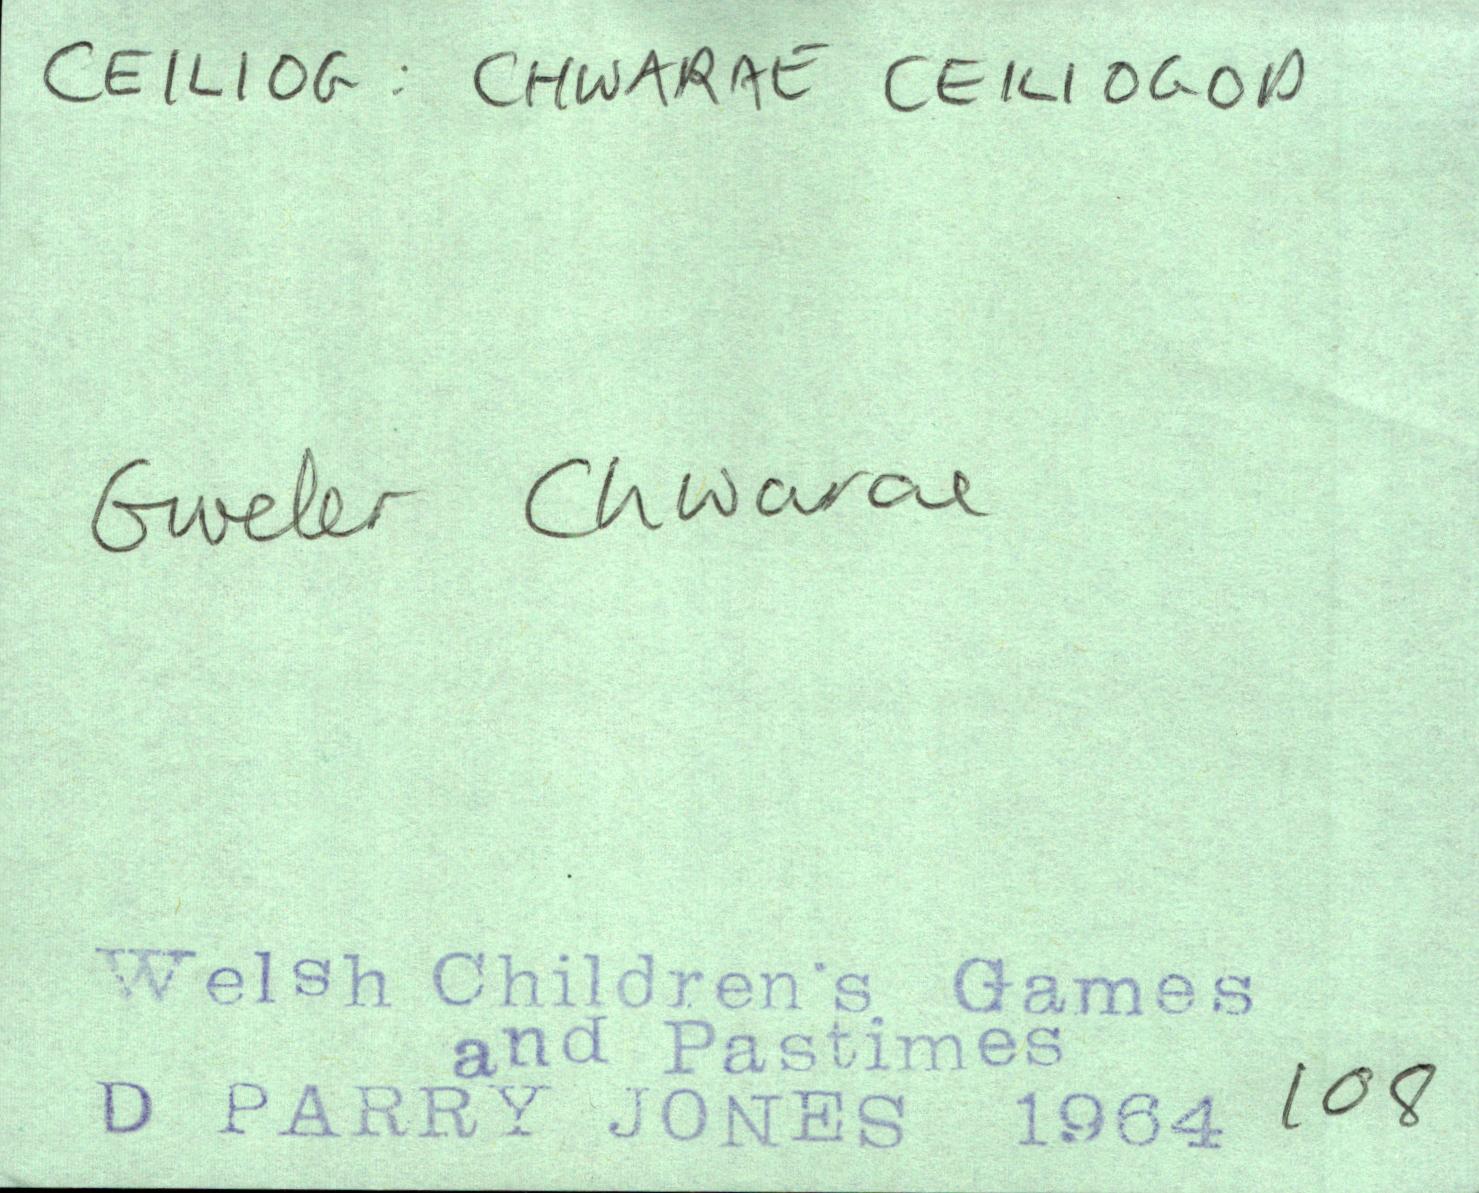 CEILIOG: CHWARAE CEILIOGOD
Gweler Chwarae
Welsh Children's Games
and Pastimes
D PARRY JONES 1964 108